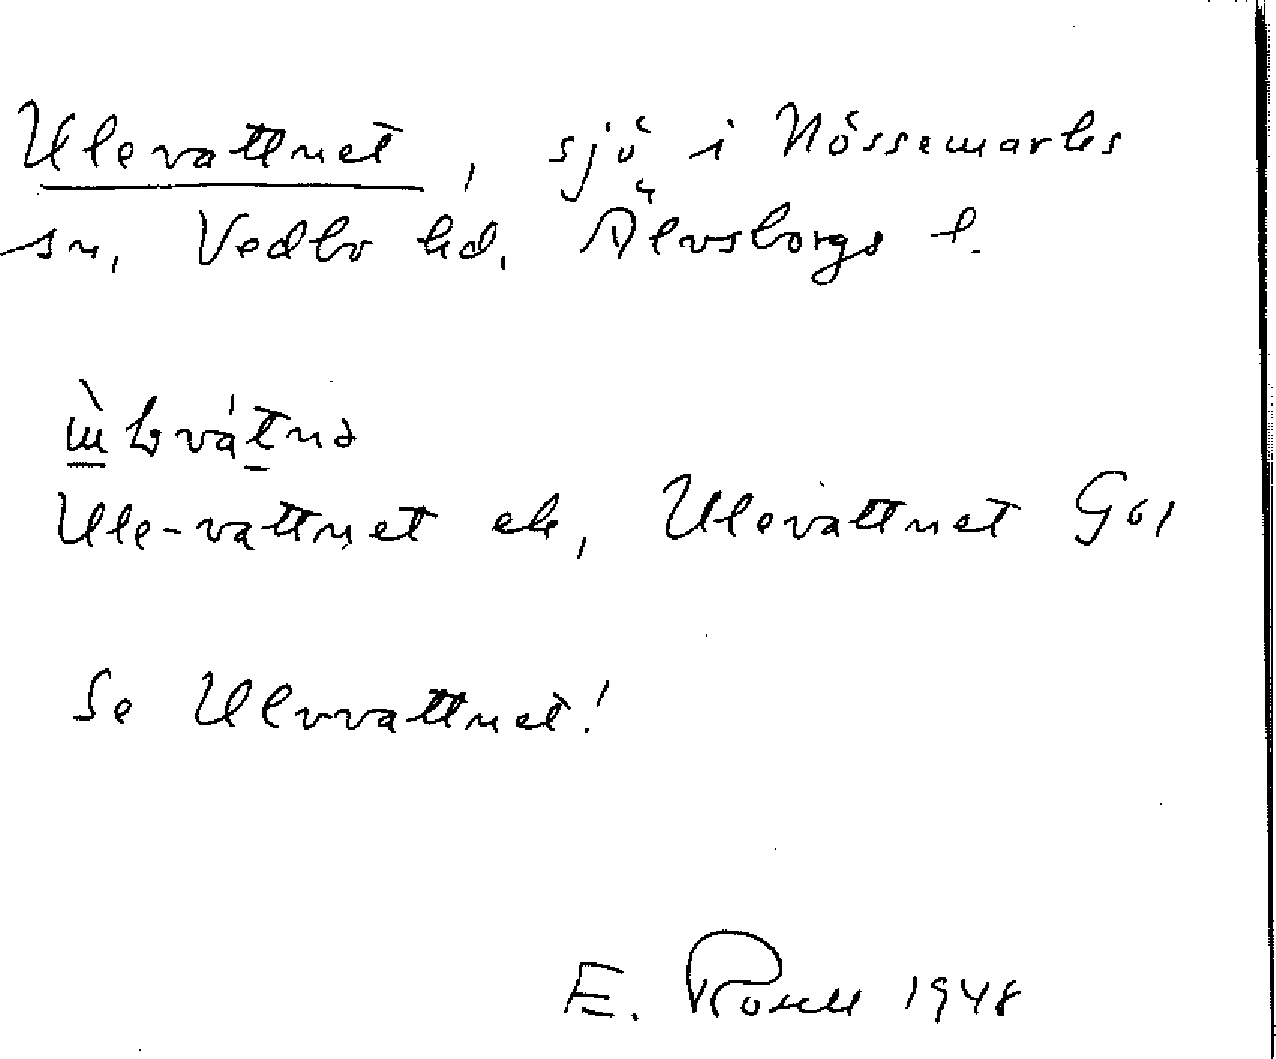 Ulevattnet, sjö i Nössemarks
sn, Vedbo hd. Älvsborgs l.
Ule-vattnet ek, Ulevattnet GU
Se Ulvvattnet!
E. Rosell 1948